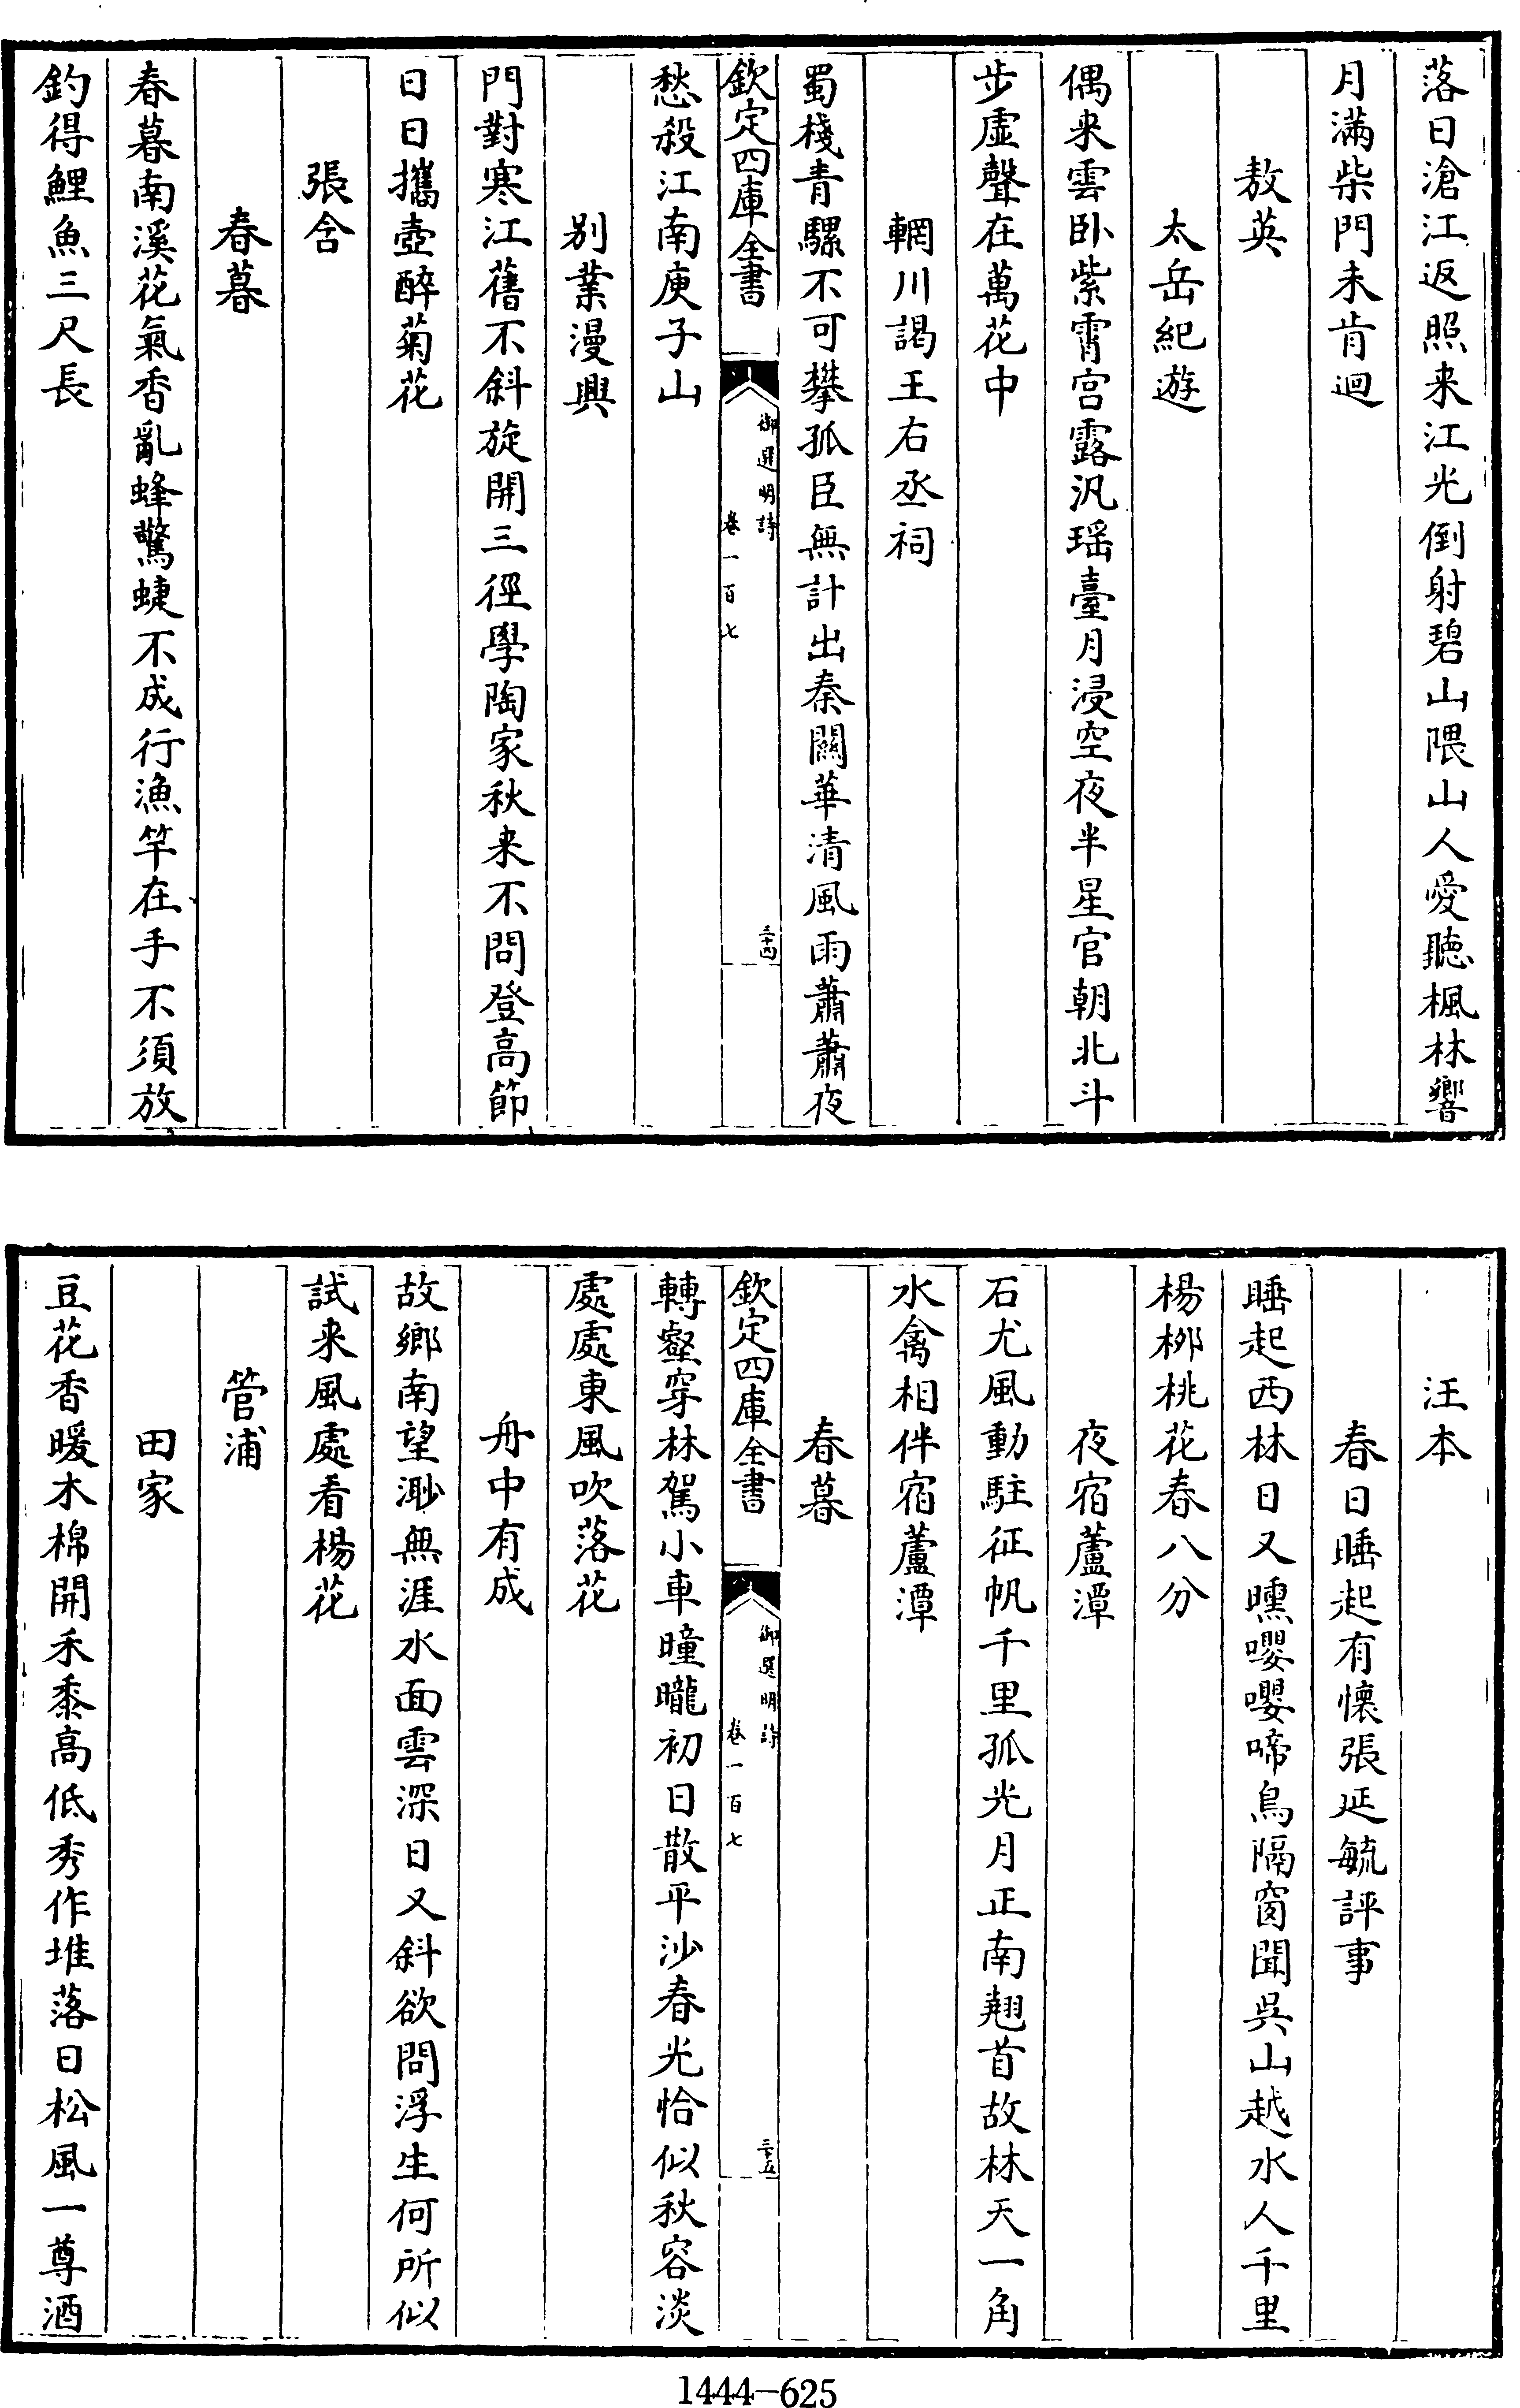 落日滄江返照来江光倒射碧山隈山人愛聽楓林響
月滿柴門未肯迴
敖英
太岳紀遊
偶来雲卧紫霄宫露汎瑶臺月浸空夜半星官朝北斗
步虛聲在萬花中
輞川謁王右丞祠
蜀棧青騾不可攀孤臣無計出秦關華清風雨蕭蕭夜
欽定四庫全書
御選明詩
卷一百七
三十四
愁殺江南庾子山
别業漫興
門對寒江舊不斜旋開三徑學陶家秋来不問登高節
日日攜壺醉菊花
張含
春暮
春暮南溪花氣香亂蜂驚蜨不成行漁竿在手不須放
釣得鯉魚三尺長
汪本
春日睡起有懐張延毓評事
睡起西林日又曛嚶嚶啼鳥隔窗聞吳山越水人千里
楊栁桃花春八分
夜宿蘆潭
石尤風動駐征帆千里孤光月正南翹首故林天一角
水禽相伴宿蘆潭
春暮
欽定四庫全書
御選明詩
卷一百七
三十五
轉壑穿林駕小車曈曨初日散平沙春光恰似秋容淡
處處東風吹落花
舟中有成
故鄉南望渺無涯水面雲深日又斜欲問浮生何所似
試来風處看楊花
管浦
田家
豆花香暖木棉開禾黍高低秀作堆落日松風一尊酒
1444-625